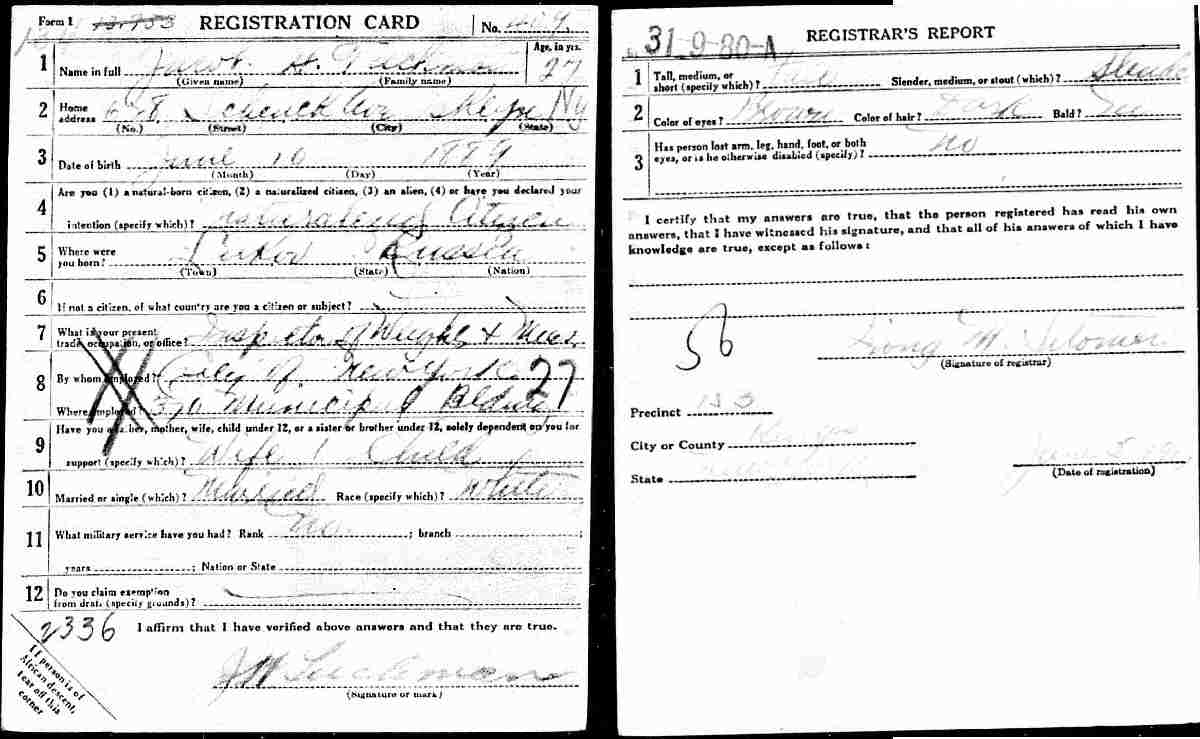 Form 1
REGISTRATION CARD
No.
Age, in yrs.
1 Name in full Jacob H.
27
(Given name) (Family name)
2 Home address Ave NY
(No.) (Street) (City) (State)
3 Date of birth June 10
(Month) (Day) (Year)
Are you (1) a natural-born citizen, (2) a naturalized citizen, (3) an alien, (4) or have you declared your
4 intention (specify which)? Citizen
5 Where were you born? Russia
(Town) (State) (Nation)
6 If not a citizen, of what country are you a citizen or subject?
7 What is your present trade, occupation, or office? Inspector of Weights & Meas.
8 By whom employed? City of New York 27
Where employed? Municipal Bldg
9 Have you a father, mother, wife, child under 12, or a sister or brother under 12, solely dependent on you for
support (specify which)? Wife 1 Child
10 Married or single (which)? Married Race (specify which)? White
11 What military service have you had? Rank No ; branch ;
years ; Nation or State
12 Do you claim exemption from draft (specify grounds)?
2336 I affirm that I have verified above answers and that they are true.
(Signature or mark)
If person is of
African descent,
tear off this
corner
31-9-80-A
REGISTRAR'S REPORT
1 Tall, medium, or short (specify which)? Slender, medium, or stout (which)? Slender
2 Color of eyes? Brown Color of hair? Dark Bald?
3 Has person lost arm, leg, hand, foot, or both eyes, or is he otherwise disabled (specify)? No
I certify that my answers are true, that the person registered has read his own
answers, that I have witnessed his signature, and that all of his answers of which I have
knowledge are true, except as follows:
56
(Signature of registrar)
Precinct
City or County Kings
State
June 5
(Date of registration)